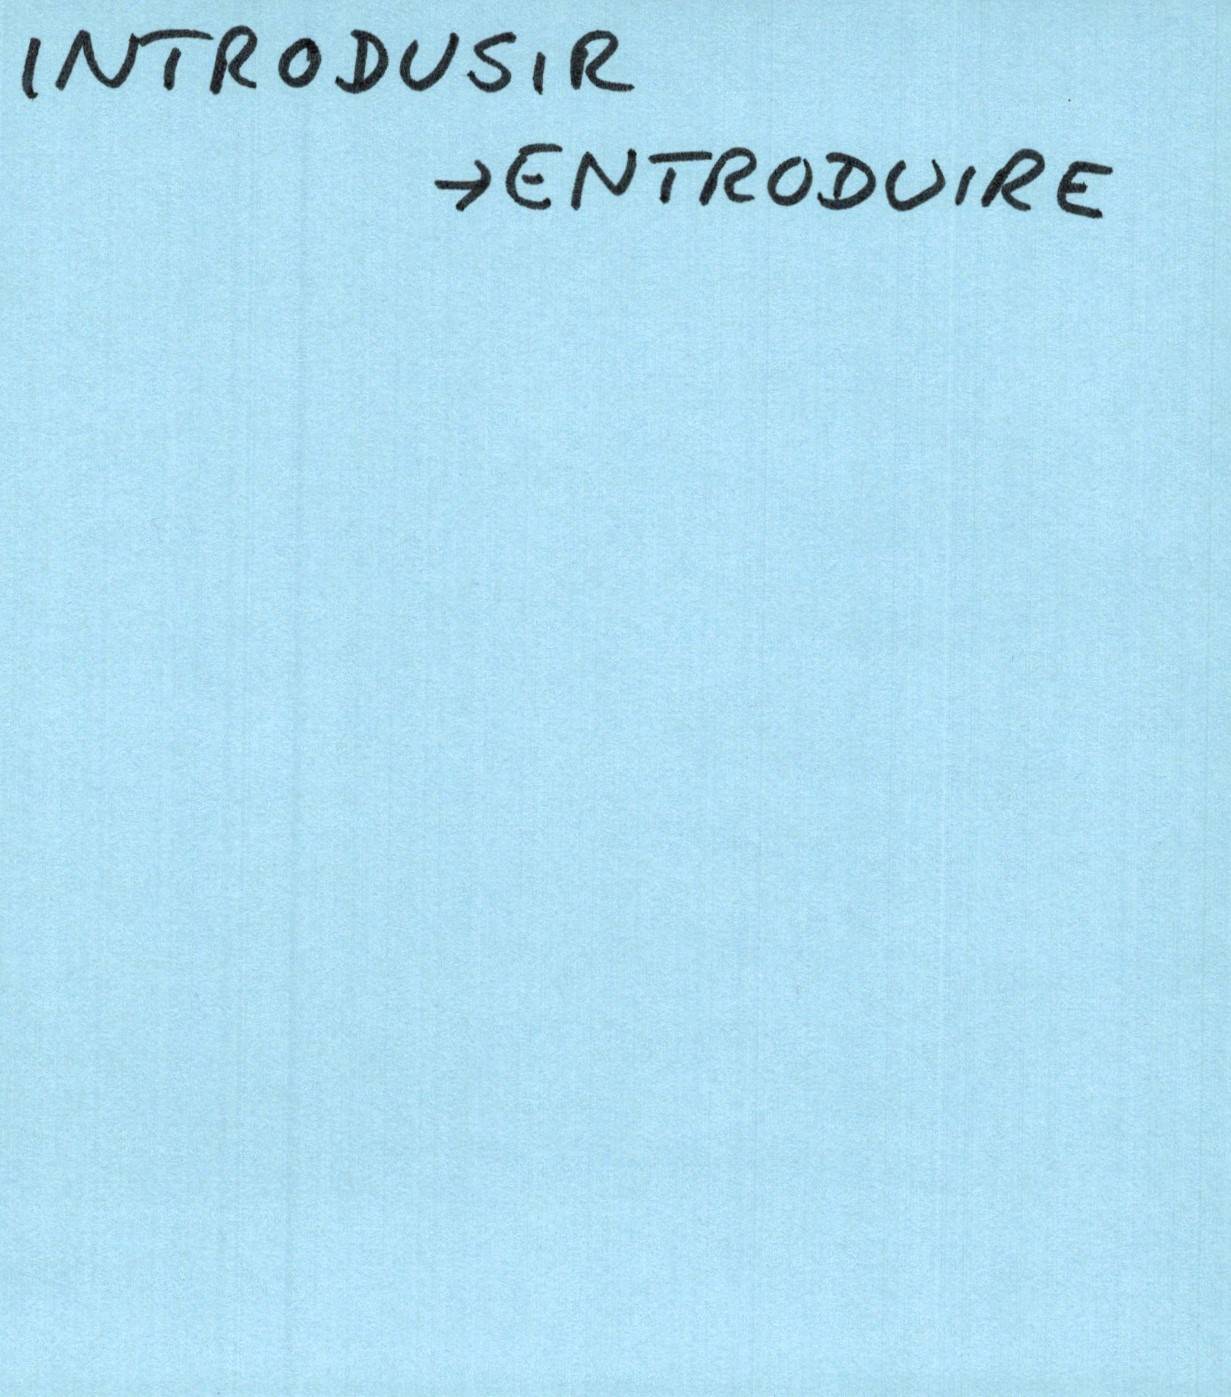 INTRODUSIR
→ENTRODUIRE